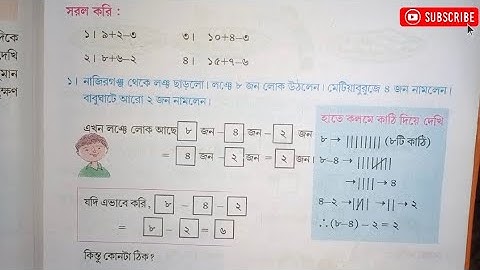 সরল করি :
SUBSCRIBE
১। ৯+২-৩ ৩। ১০+৪-৩
২। ৮+৬-২ ৪। ১৫+৭-৬
১। নাজিরগঞ্জ থেকে লঞ্চ ছাড়লো। লঞ্চে ৮ জন লোক উঠলেন। মেটিয়াবুরুজে ৪ জন নামলেন।
বাবুঘাটে আরো ২ জন নামলেন।
এখন লঞ্চে লোক আছে ৮ জন - ৪ জন - ২ জন
= ৪ জন - ২ জন = ২ জন।
যদি এভাবে করি, ৮ - ৪ - ২
= ৮ - ২ = ৬
কিন্তু কোনটা ঠিক?
হাতে কলমে কাঠি দিয়ে দেখি
৮ → |||||||| (৮টি কাঠি)
৮-৪ →
→ |||| → ৪
৪-২ → → || → ২
∴ (৮-৪) - ২ = ২
দিকে
দেখি
মান
ক্ষণ